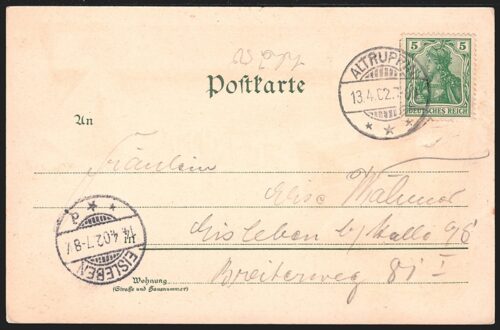 5 5
DEUTSCHES REICH
ALTRUPPIN
13.4.02.7
Postkarte
An
Fräulein
Elise
Eisleben b/ Halle a/S
in
Breiterweg 81 I
EISLEBEN
14.4.02.7-8.V.
Wohnung
(Straße und Hausnummer)